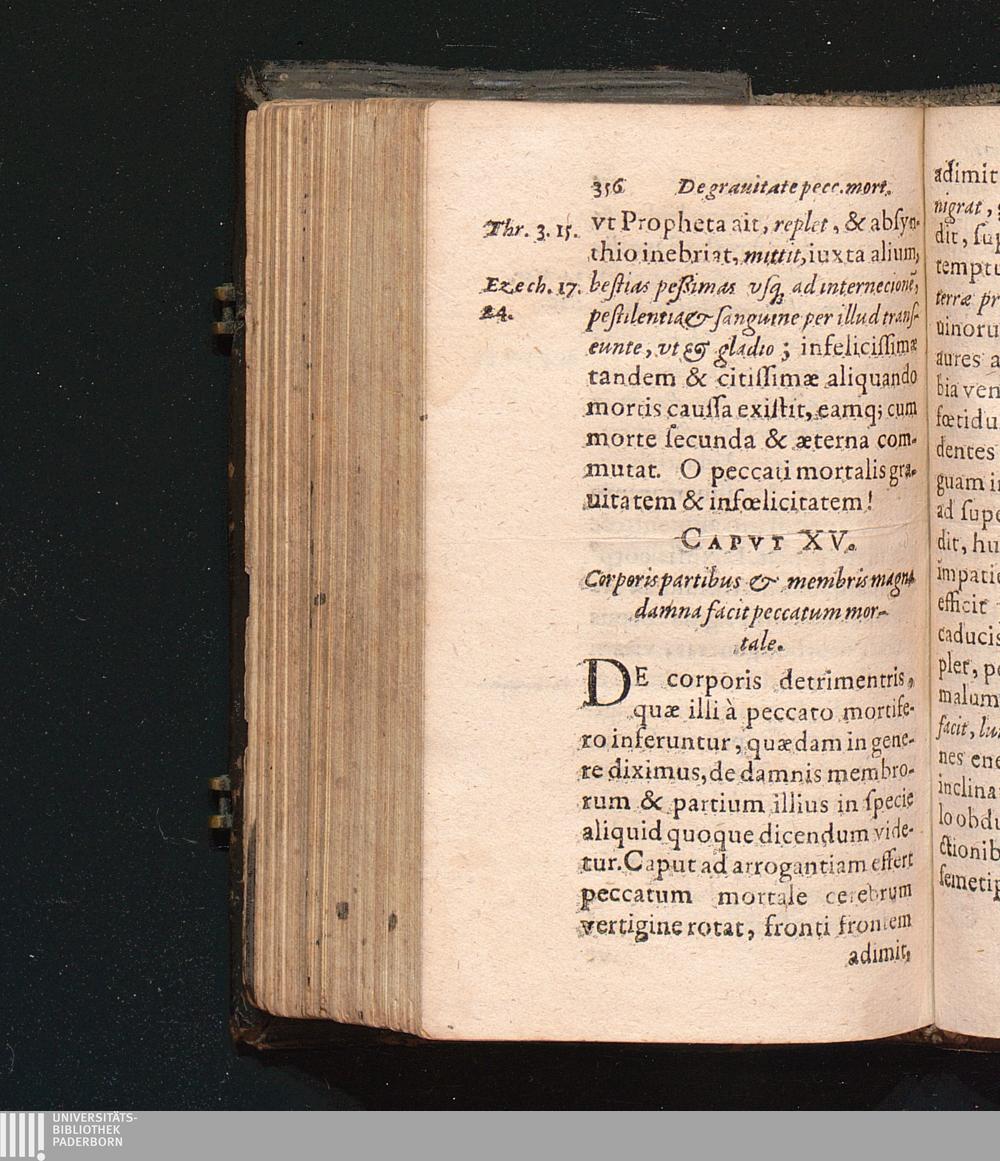 356 De grauitate pecc. mort.
Thr. 3. 15.
Ezech. 17.
24.
vt Propheta ait, replet, & abſyn-
thio inebriat, mittit, iuxta alium,
beſtias peſſimas vſq; ad internecionē,
peſtilentia & ſanguine per illud tranſ-
eunte, vt & gladio; infeliciſſimæ
tandem & citiſſimæ aliquando
mortis cauſſa exiſtit, eamq; cum
morte ſecunda & æterna com-
mutat. O peccati mortalis gra-
uitatem & infœlicitatem!
CAPVT XV.
Corporis partibus & membris magna
damna facit peccatum mor-
tale.
DE corporis detrimentris,
quæ illi à peccato mortife-
ro inferuntur, quædam in gene-
re diximus, de damnis membro-
rum & partium illius in ſpecie
aliquid quoque dicendum vide-
tur. Caput ad arrogantiam effert
peccatum mortale cerebrum
vertigine rotat, fronti frontem
adimit,
adimit
nigrat,
dit, ſup
temptu
terræ pr
uinoru
aures a
bia ven
fœtidu
dentes
guam i
ad ſupe
dit, hu
impatie
efficit
caducis
plet, pe
malum
facit, lu
nes ene
inclina
lo obdu
ctionib
ſemetip
UNIVERSITÄTS-
BIBLIOTHEK
PADERBORN